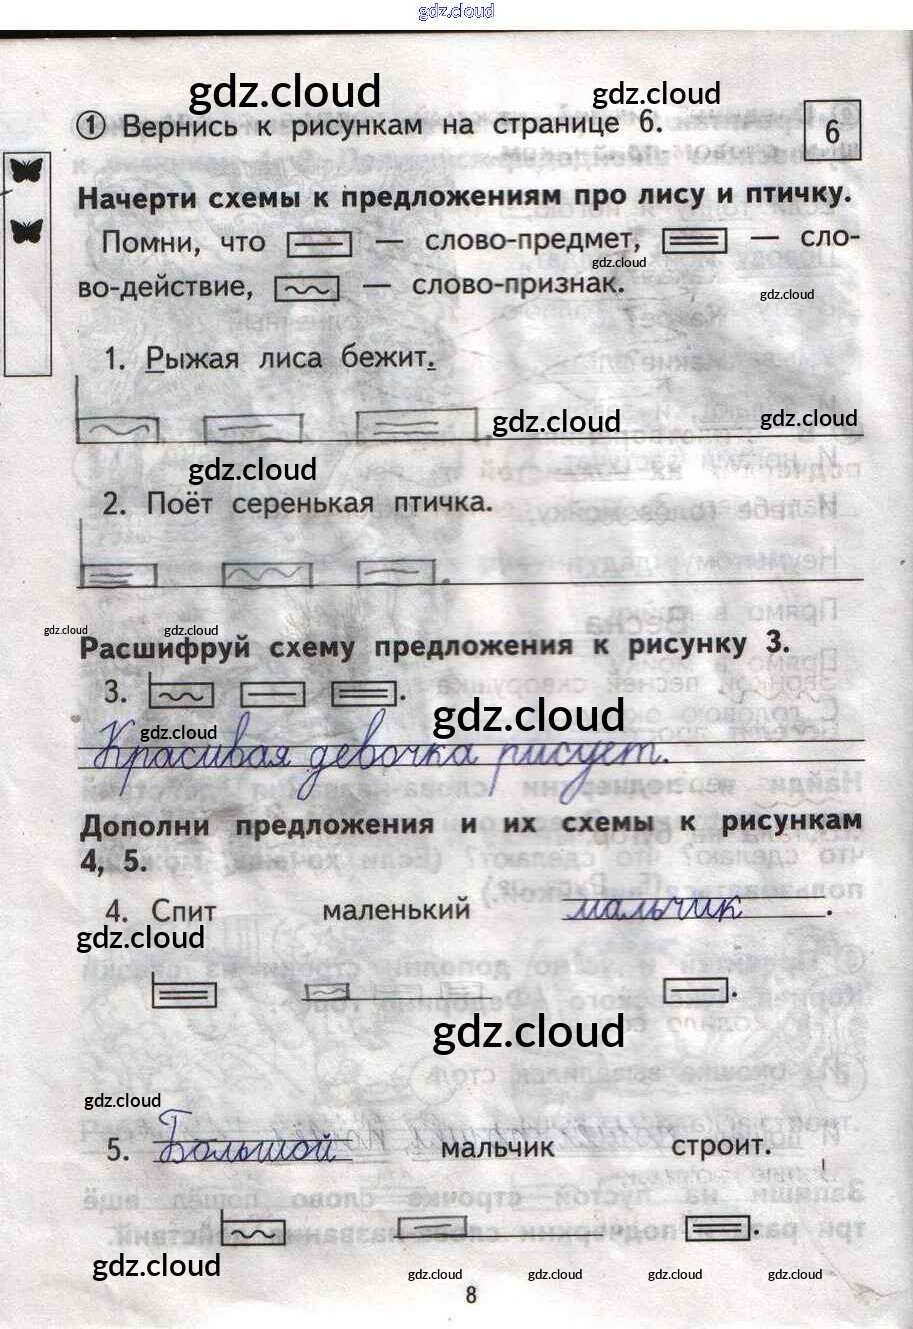 gdz.cloud
gdz.cloud gdz.cloud
① Вернись к рисункам на странице 6. 6
Начерти схемы к предложениям про лису и птичку.
Помни, что — слово-предмет, — сло-
gdz.cloud
во-действие, — слово-признак.
gdz.cloud
1. Рыжая лиса бежит.
gdz.cloud gdz.cloud
gdz.cloud
2. Поёт серенькая птичка.
gdz.cloud gdz.cloud
Расшифруй схему предложения к рисунку 3.
3. .
gdz.cloud
gdz.cloud
Красивая девочка рисует.
Дополни предложения и их схемы к рисункам
4, 5.
4. Спит маленький мальчик.
gdz.cloud
gdz.cloud
gdz.cloud
5. Большой мальчик строит.
gdz.cloud
gdz.cloud gdz.cloud gdz.cloud gdz.cloud
8